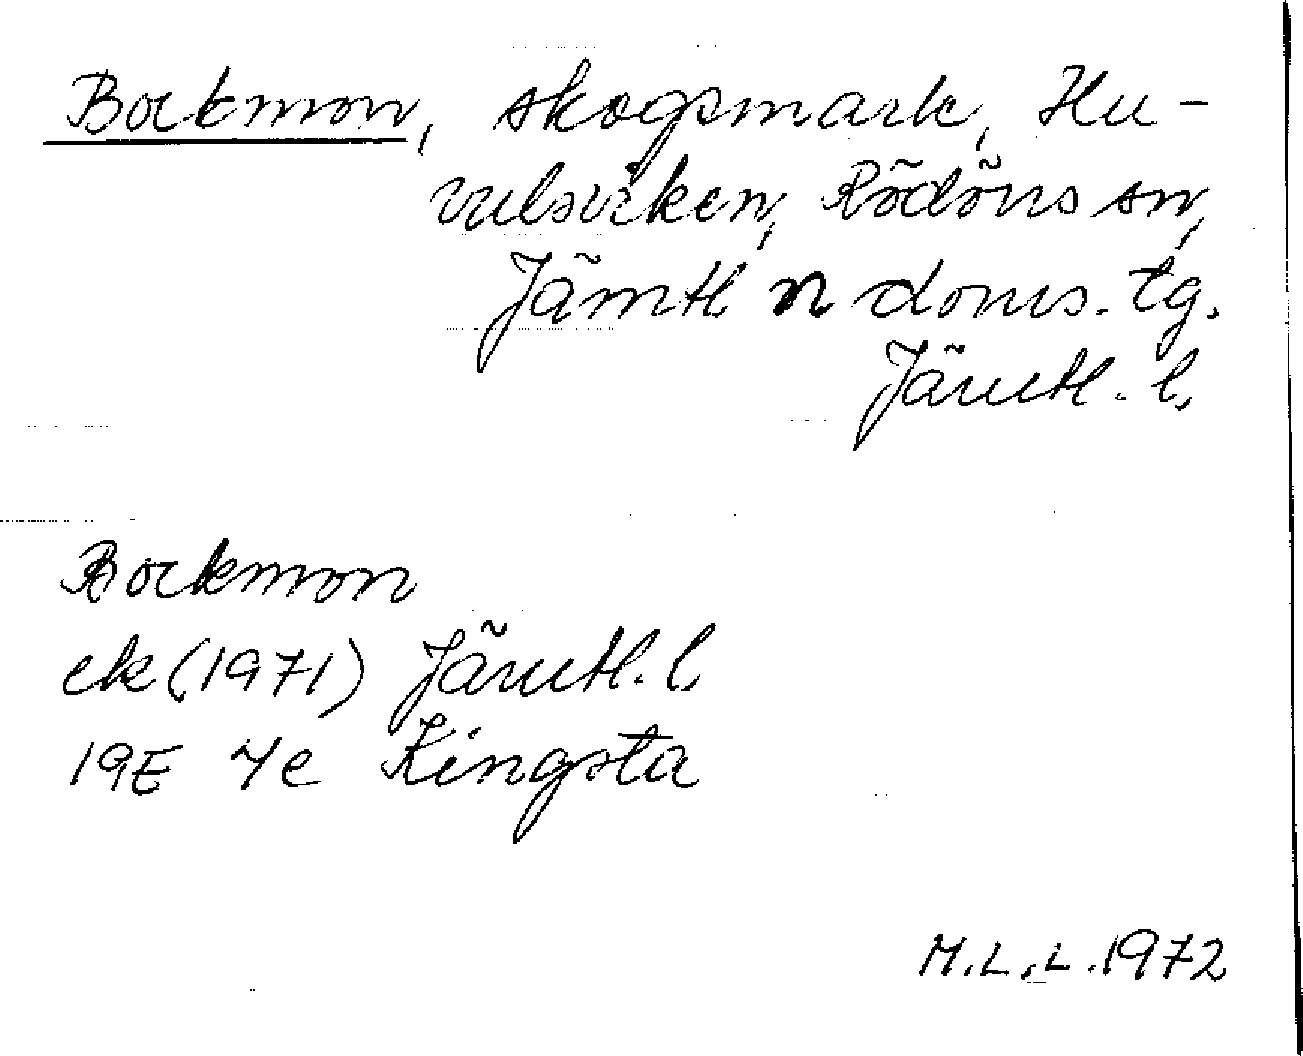 Bockmon, skogsmark, Hu-
vulsviken, Rödöns sn,
Jämtl n doms. tg.
Jämtl. l.
Bockmon
ek (1971) Jämtl. l.
19E 7e Kingsta
M.L.L. 1972